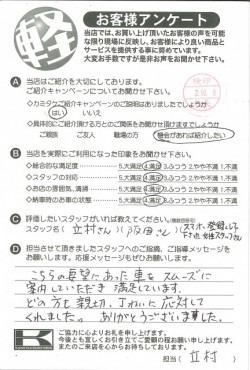 軽
お客様アンケート
当店では、お買い上げ頂いたお客様の声を可能
な限り現場に反映し、お客様により良い商品と
サービスを提供する事に努めています。
大変お手数ですが是非お声をお聞かせ下さい。
A 当店はご紹介を大切にしております。
ご紹介キャンペーンについてお聞かせ下さい。
◇カミタケご紹介キャンペーンの説明はありましたでしょうか
はい いいえ
◇具体的にご紹介頂ける方とのご関係をお聞かせ頂けますでしょうか
ご親族 ご友人 職場の方 機会があれば紹介したい
B 当店を実際にご利用になった印象をお聞かせ下さい。
◇総合的な満足度 5.大満足 4.満足 3.ふつう 2.やや不満 1.不満
◇スタッフの対応 5.大満足 4.満足 3.ふつう 2.やや不満 1.不満
◇お店の雰囲気、清潔 5.大満足 4.満足 3.ふつう 2.やや不満 1.不満
◇納車時のお車の状態 5.大満足 4.満足 3.ふつう 2.やや不満 1.不満
C 評価したいスタッフがいれば教えてください。(複数回答可)
スタッフ名( 立村さん )( 阪田さん ) スマホ、登録して
下さったスタッフさん
D 担当させて頂きましたスタッフへのご指摘、ご指導メッセージを
お願いします。応援メッセージもぜひお願いします。
こちらの要望にあった車をスムーズに
案内していただき満足しています。
どの方も親切、丁ねいに応対して
くれました。ありがとうございました。
K
ご協力に心よりお礼を申し上げます。
今後とも宜しくお引き立てご愛顧の程お願い申し上げます。
またのご来店を心からお待ちしております。
担当( 立村 )